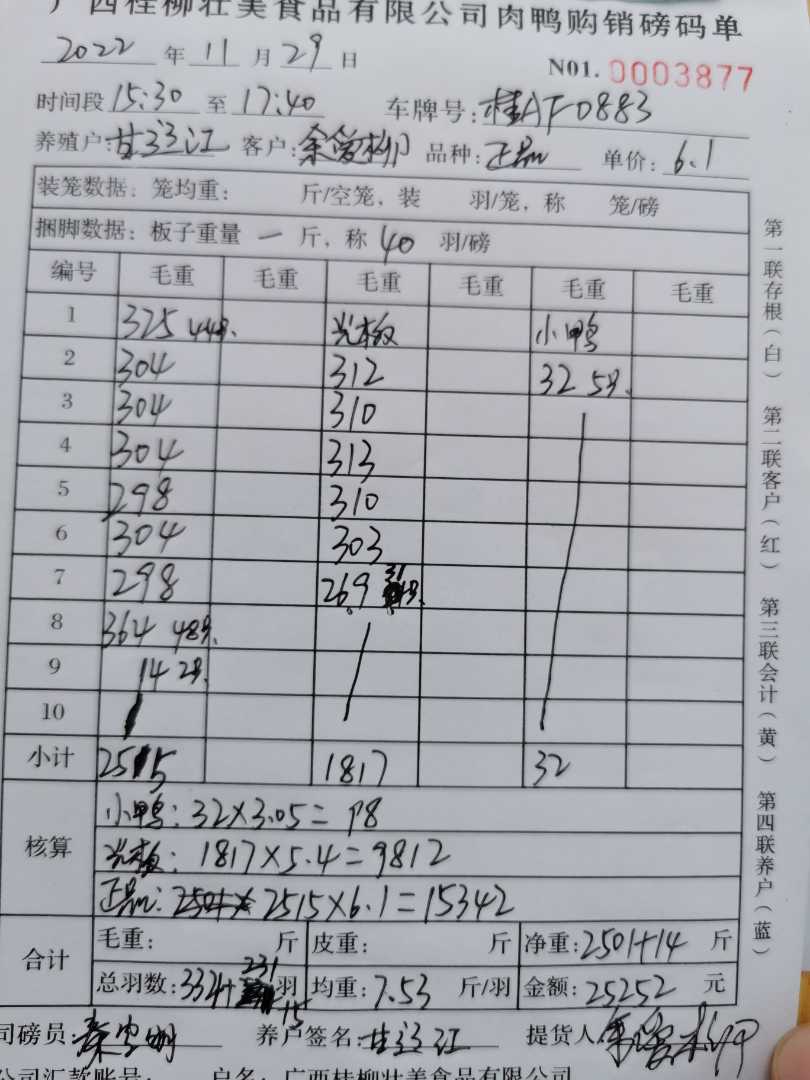 广西桂柳壮美食品有限公司肉鸭购销磅码单
2022 年 11 月 29 日 N01. 0003877
时间段 15:30 至 17:40 车牌号: 桂AF0883
养殖户: 甘 江 客户: 余爱柳 品种: 正品 单价: 6.1
装笼数据: 笼均重: 斤/空笼, 装 羽/笼, 称 笼/磅
捆脚数据: 板子重量 一 斤, 称 40 羽/磅
编号 毛重 毛重 毛重 毛重 毛重 毛重
1 325 44羽. 光板 小鸭
2 304 312 32 5羽.
3 304 310
4 304 313
5 298 310
6 304 303
7 298 269 31羽.
8 364 48羽.
9 14 2羽.
10
小计 2515 1817 32
核算
小鸭: 32×3.05= 98
光板: 1817×5.4=9812
正品: 2515×6.1=15342
合计
毛重: 斤 皮重: 斤 净重: 2501+14 斤
总羽数: 334+231 羽 均重: 7.53 斤/羽 金额: 25252 元
15
司磅员: 养户签名: 甘 江 提货人 余爱柳
公司汇款账号: 户名: 广西桂柳壮美食品有限公司
第一联存根(白) 第二联客户(红) 第三联会计(黄) 第四联养户(蓝)